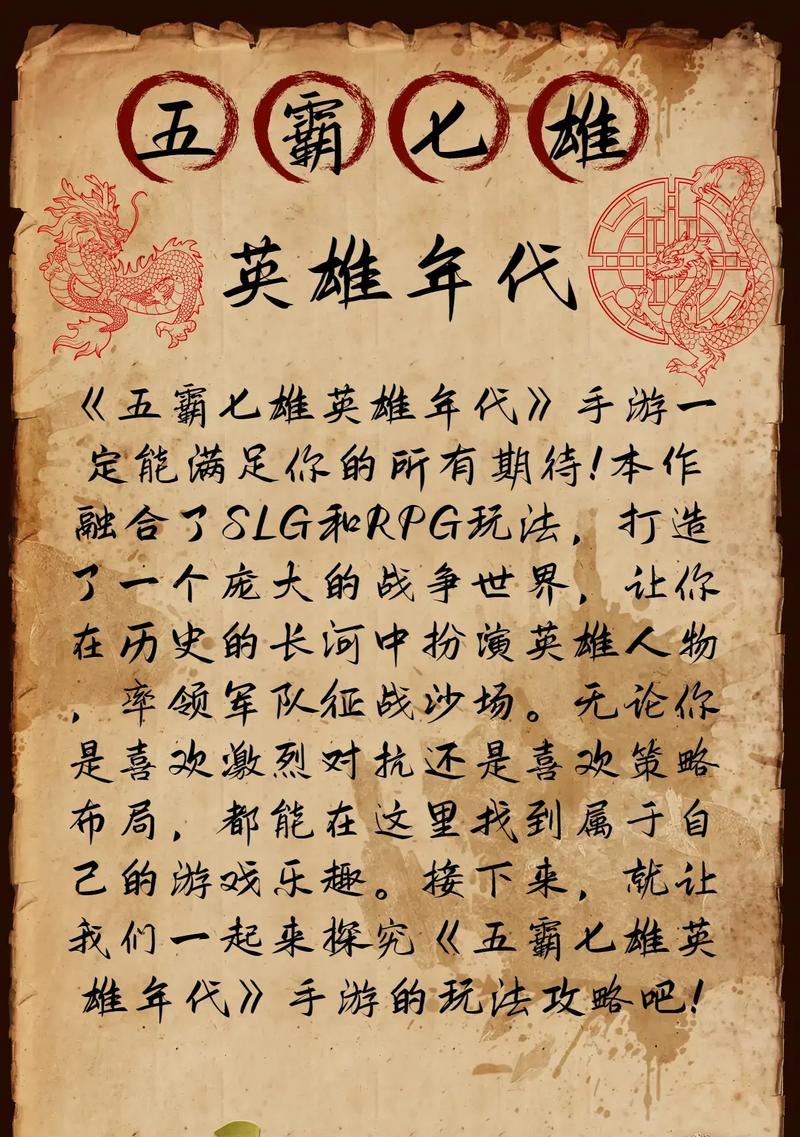 五霸七雄
英雄年代
《五霸七雄英雄年代》手游一
定能满足你的所有期待!本作
融合了SLG和RPG玩法，打造
了一个庞大的战争世界，让你
在历史的长河中扮演英雄人物
，率领军队征战沙场。无论你
是喜欢激烈对抗还是喜欢策略
布局，都能在这里找到属于自
己的游戏乐趣。接下来，就让
我们一起来探究《五霸七雄英
雄年代》手游的玩法攻略吧!